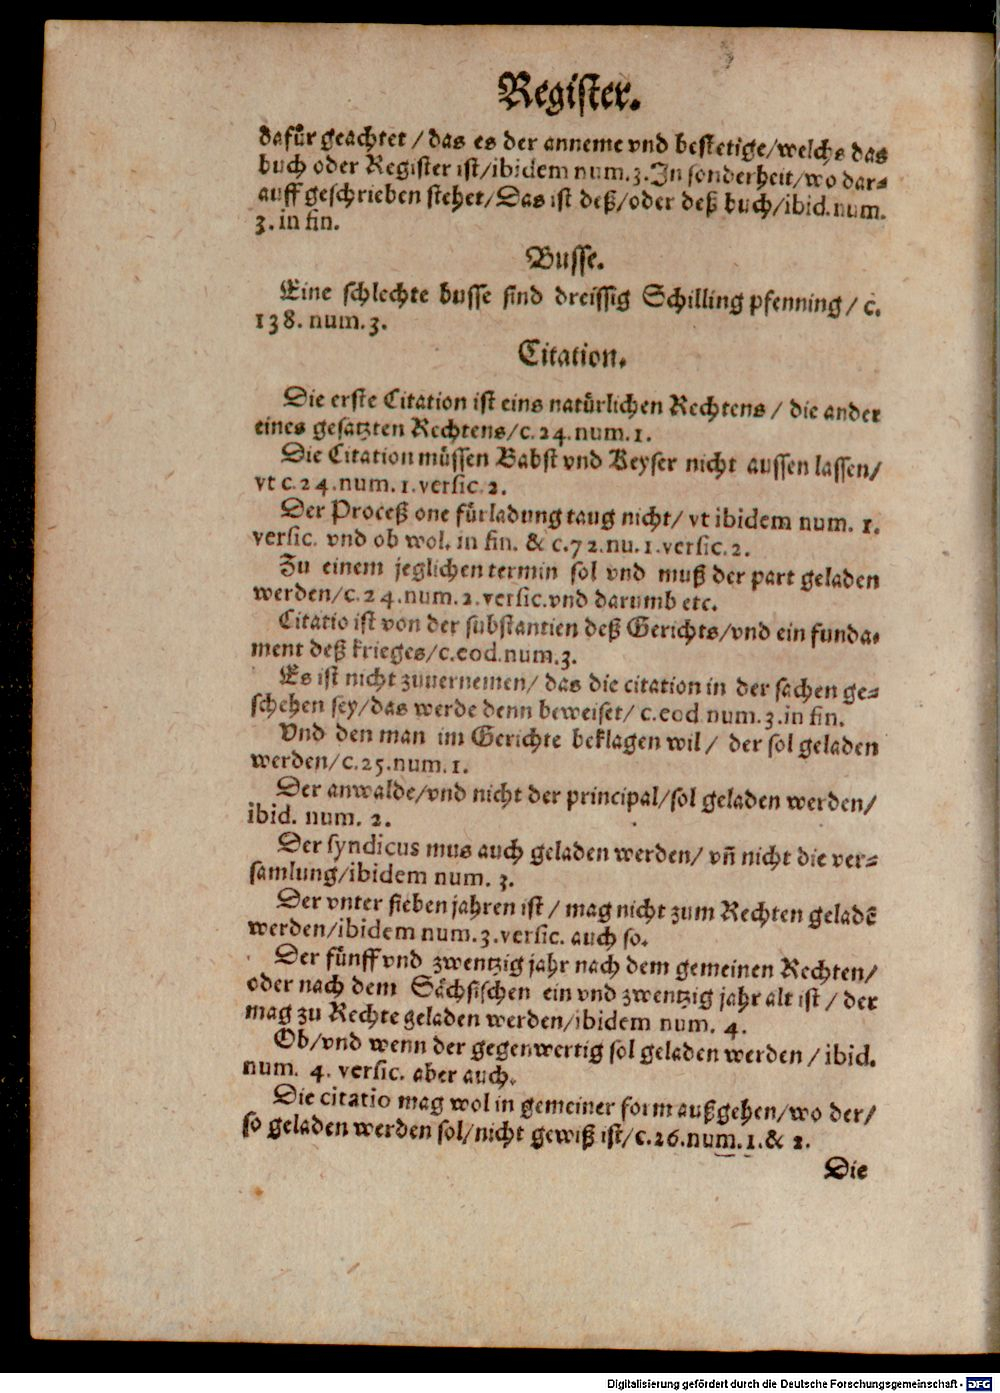 Register.
dafür geachtet / das es der anneme vnd bestetige/welchs das
buch oder Register ist/ibidem num.3.In sonderheit/wo dar-
auff geschrieben stehet/Das ist deß/oder deß buch/ibid.num.
3. in fin.
Busse.
Eine schlechte busse sind dreissig Schilling pfenning / c.
138. num.3.
Citation.
Die erste Citation ist eins natürlichen Rechtens / die ander
eines gesatzten Rechtens/c.24.num.1.
Die Citation müssen Babst vnd Keyser nicht aussen lassen/
vt c.24.num.1.versic.2.
Der Proceß one fürladung taug nicht/ vt ibidem num. 1.
versic. vnd ob wol. in fin. & c.72.nu.1.versic.2.
Zu einem jeglichen termin sol vnd muß der part geladen
werden/c.24.num.2.versic.vnd darumb etc.
Citatio ist von der substantien deß Gerichts/vnd ein funda-
ment deß krieges/c.eod.num.3.
Es ist nicht zuuernemen/ das die citation in der sachen ge-
schehen sey/das werde denn beweiset/ c.eod num.3.in fin.
Vnd den man im Gerichte beklagen wil / der sol geladen
werden/c.25.num.1.
Der anwalde/vnd nicht der principal/sol geladen werden/
ibid. num. 2.
Der syndicus mus auch geladen werden/ vn̄ nicht die ver-
samlung/ibidem num. 3.
Der vnter sieben jahren ist / mag nicht zum Rechten geladē
werden/ibidem num.3.versic. auch so.
Der fünff vnd zwentzig jahr nach dem gemeinen Rechten/
oder nach dem Sächsischen ein vnd zwentzig jahr alt ist / der
mag zu Rechte geladen werden/ibidem num. 4.
Ob/vnd wenn der gegenwertig sol geladen werden / ibid.
num. 4. versic. aber auch.
Die citatio mag wol in gemeiner form außgehen/wo der/
so geladen werden sol/nicht gewiß ist/c.26.num.1.& 2.
Die
Digitalisierung gefördert durch die Deutsche Forschungsgemeinschaft - DFG